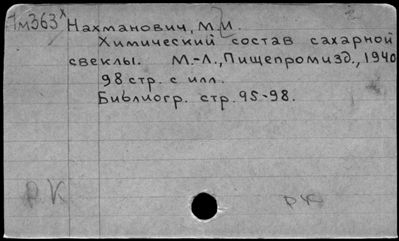 1м363х Нахманович, М.И.
Химический состав сахарной
свеклы. М.-Л., Пищепромизд., 1940
98 стр. с илл.
Библиогр. стр. 95-98.
РК РК